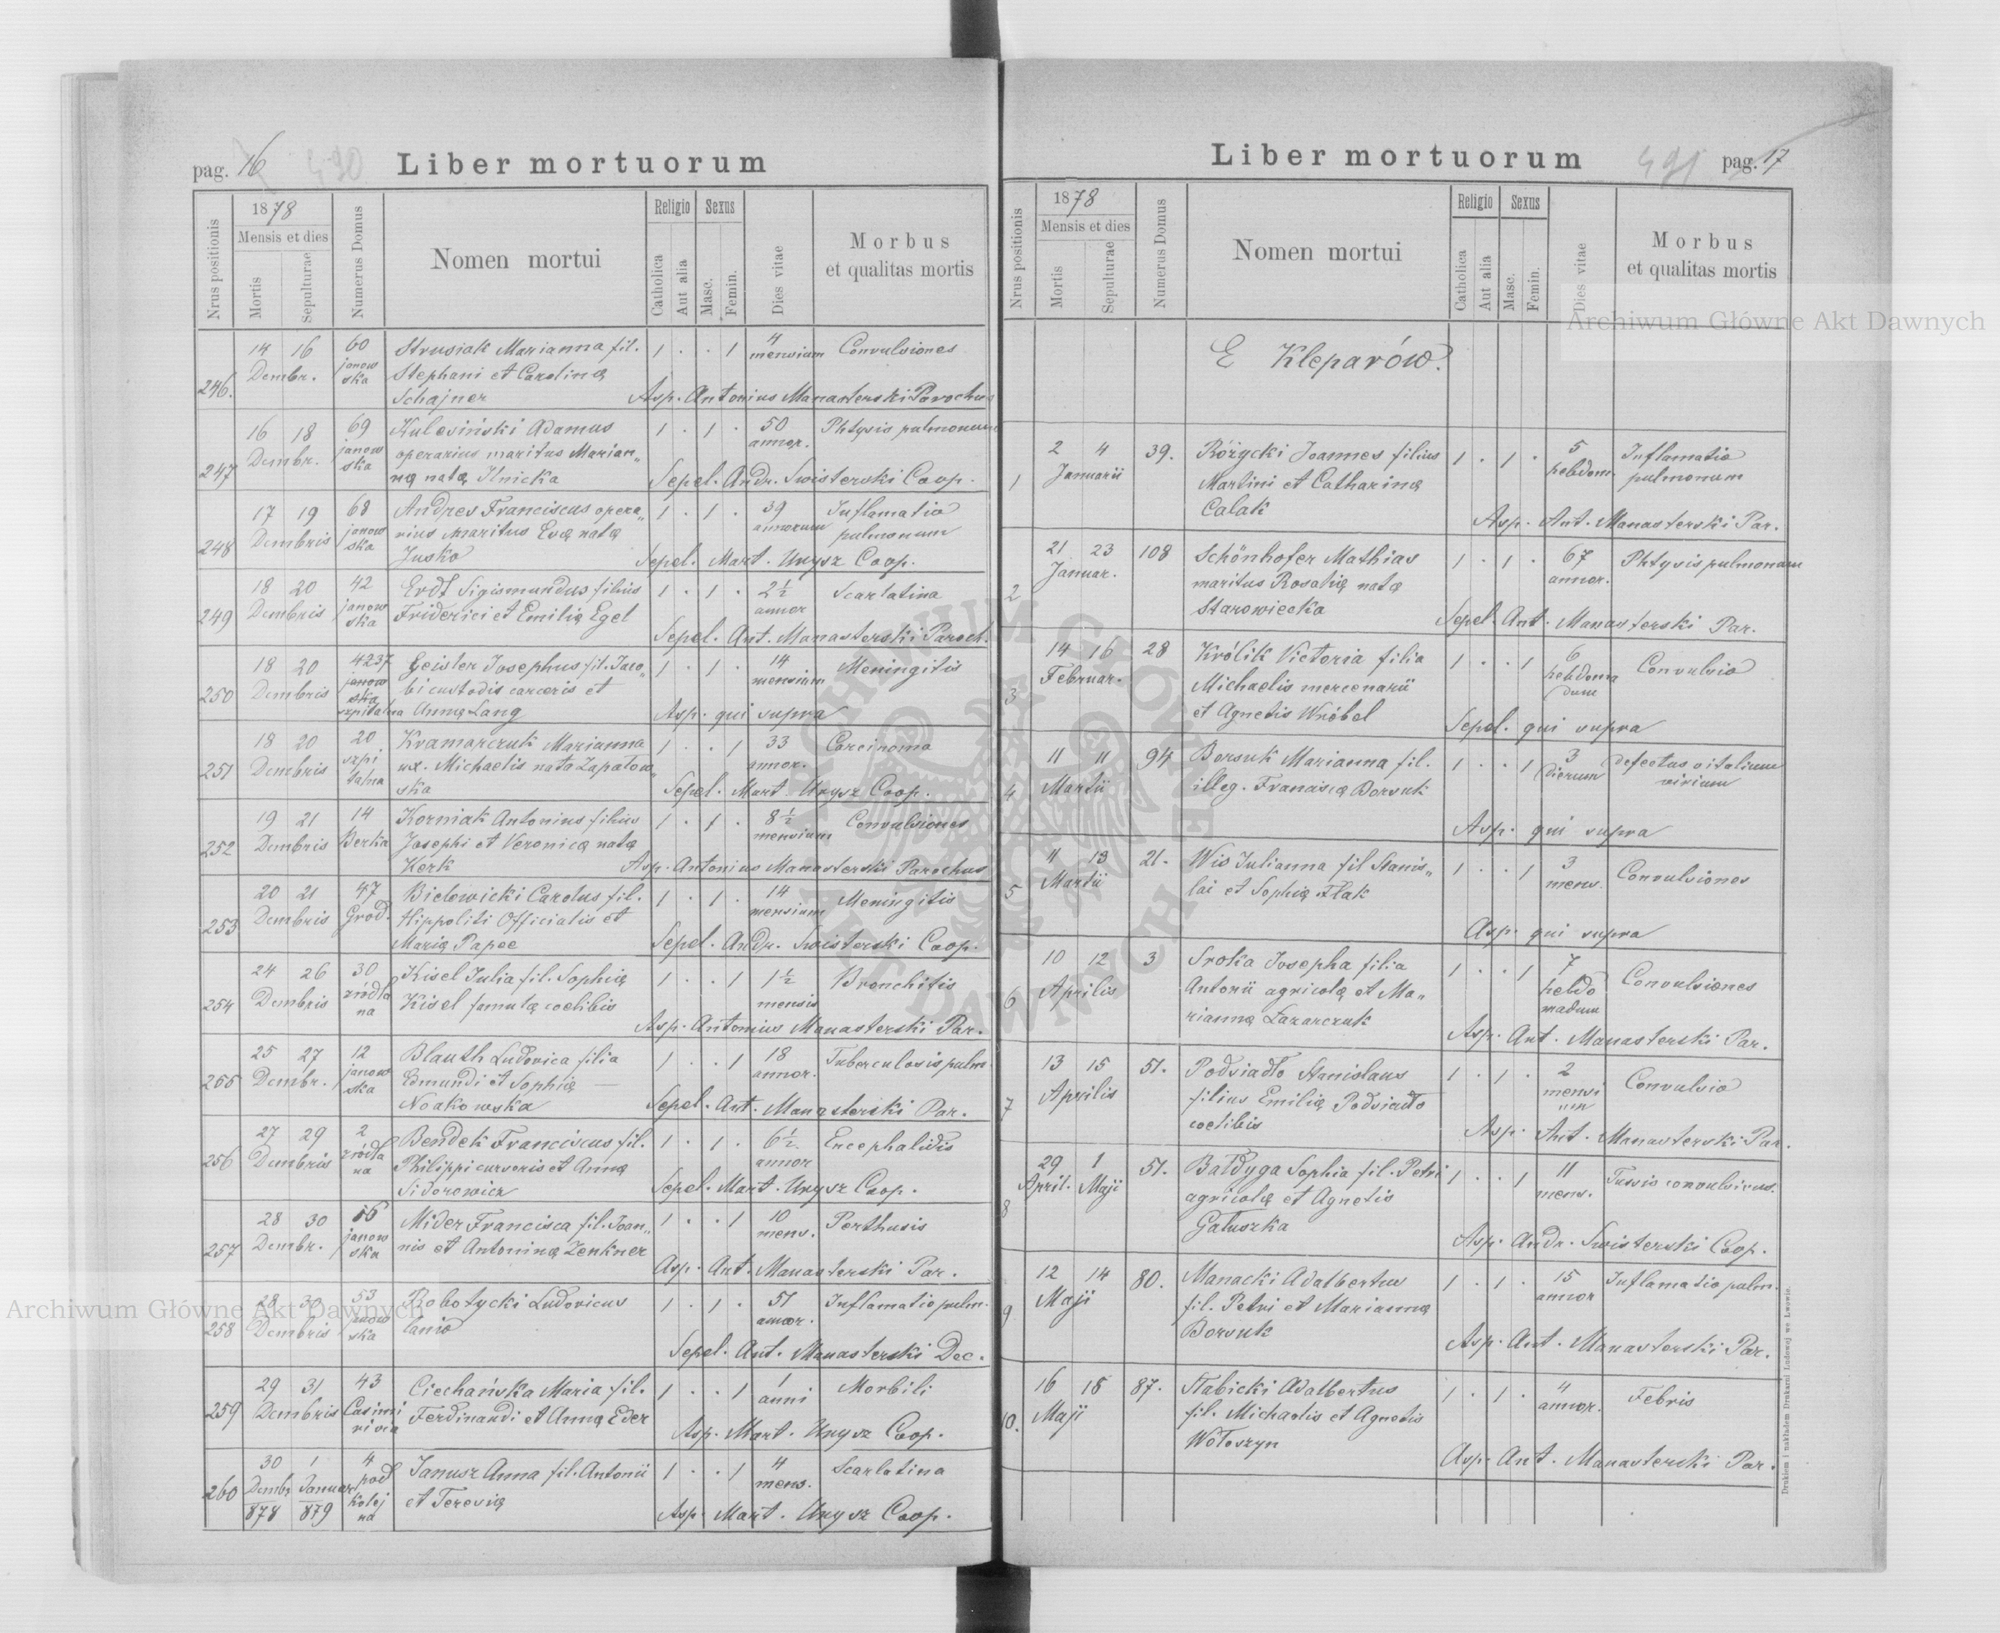 pag. 16 490 Liber mortuorum
Nrus positionis
1878
Mensis et dies
Mortis
Sepulturae
Numerus Domus
Nomen mortui
Religio
Catholica
Aut alia
Sexus
Masc.
Femin.
Dies vitae
Morbus
et qualitas mortis
14 16 60 Strusiak Marianna fil. 1 . . 1 4 mensium Convulsiones
Dembr. janow
ska Stephani et Carolinę
246. Schajner Asp. Antonius Manasterski Parochus
16 18 69 Kulesiński Adamus 1 . 1 . 50 annor. Phtysis pulmonum
Dembr. janow
ska operarius maritus Marian„
247 nę natę Ilnicka Sepel. Andr. Swisterski Coop.
17 19 68 Andres Franciscus opera„ 1 . 1 . 39 annorum Inflamatio
Dembris janow
ska rius maritus Evę natę pulmonum
248 Jusko Sepel. Mart. Unysz Coop.
18 20 42 Erdt Sigismundus filius 1 . 1 . 2½ annor Scarlatina
Dembris janow
ska Friderici et Emilię Egel
249 Sepel. Ant. Manasterski Paroch.
18 20 4237 Geister Josephus fil. Jaco„ 1 . 1 . 14 mensium Meningitis
Dembris janow
ska
szpitalna bi custodis carceris et
250 Annę Lang Asp. qui supra
18 20 20 Kramarczuk Marianna 1 . . 1 33 annor. Carcinoma
Dembris szpi
talna ux. Michaelis nata Zapatow„
251 ska Sepel. Mart. Unysz Coop.
19 21 14 Korniak Antonius filius 1 . 1 . 8½ mensium Convulsiones
Dembris Berka Josephi et Veronicę natę
252 Kerk Asp. Antonius Manasterski Parochus
20 21 47 Bielowicki Carolus fil. 1 . 1 . 14 mensium Meningitis
Dembris Grod. Hippoliti Officialis et
253 Marię Papee Sepel. Andr. Swisterski Coop.
24 26 30 Kisel Julia fil. Sophię 1 . . 1 1½ mensis Bronchitis
Dembris źródla
na Kisel famulę coelibis
254 Asp. Antonius Manasterski Par.
25 27 12 Blauth Ludovica filia 1 . . 1 18 annor. Tuberculosis pulm.
Dembr. janow
ska Edmundi et Sophię
255 Noakowska Sepel. Ant. Manasterski Par.
27 29 2 Bendek Franciscus fil. 1 . 1 . 6½ annor Encephalidis
Dembris źródla
na Philippi cursoris et Annę
256 Sidorowicz Sepel. Mart. Unysz Coop.
28 30 56 Mider Francisca fil. Joan„ 1 . . 1 10 mens. Perthusis
Dembr. janow
ska nis et Antoninę Zenkner
257 Asp. Ant. Manasterski Par.
28 30 53 Bobotycki Ludovicus 1 . 1 . 51 annor. Inflamatio pulm.
Dembris janow
ska lanio
258 Sepel. Ant. Manasterski Dec.
29 31 43 Ciechańska Maria fil. 1 . . 1 1 anni Morbili
Dembris Casimi
Ferdinandi et Annę Eder
259 Asp. Mart. Unysz Coop.
30 1 4 Janusz Anna fil. Antonii 1 . . 1 4 mens. Scarlatina
Dembr Januar pod
kolej
na et Teresię
260 878 879 Asp. Mart. Unysz Coop.
Liber mortuorum 491 pag. 17
Nrus positionis
1878
Mensis et dies
Mortis
Sepulturae
Numerus Domus
Nomen mortui
Religio
Catholica
Aut alia
Sexus
Masc.
Femin.
Dies vitae
Morbus
et qualitas mortis
E Kleparów.
2 4 39. Różycki Joannes filius 1 . 1 . 5 hebdom. Inflamatio
Januarii Martini et Catharinę pulmonum
1 Calak Asp. Ant. Manasterski Par.
21 23 108 Schönhofer Mathias 1 . 1 . 67 annor. Phtysis pulmonum
Januar. maritus Rosalię natę
2 Starowiecka Sepel. Ant. Manasterski Par.
14 16 28 Królik Victoria filia 1 . . 1 6 hebdoma
dum Convulsio
Februar. Michaelis mercenarii
3 et Agnetis Wróbel Sepel. qui supra
11 11 94 Borsuk Marianna fil. 1 . . 1 3 dierum defectus vitalium
Martii illeg. Franciscę Borsuk virium
4 Asp. qui supra
11 13 21. Wis Julianna fil Stanis„ 1 . . 1 3 mens. Convulsiones
Martii lai et Sophię Flak
5 Asp. qui supra
10 12 3 Sroka Josepha filia 1 . . 1 7 hebdo
madum Convulsiones
Aprilis Antonii agricolę et Ma„
6 riannę Lazarczuk Asp. Ant. Manasterski Par.
13 15 51. Podsiadło Stanislaus 1 . 1 . 2 mensi
um Convulsio
Aprilis filius Emilię Podsiadło
7 coelibis Asp. Ant. Manasterski Par.
29 1 51. Bałdyga Sophia fil. Petri 1 . . 1 11 mens. Tussis convulsivus.
April. Maji agricolę et Agnetis
8 Gałuszka Asp. Andr. Swisterski Coop.
12 14 80. Manacki Adalbertus 1 . 1 . 15 annor Inflamatio pulm.
Maji fil. Petri et Mariannę
9 Borsuk Asp. Ant. Manasterski Par.
16 18 87. Słabicki Adalbertus 1 . 1 . 4 annor. Febris
Maji fil. Michaelis et Agnetis
10. Wołoszyn Asp. Ant. Manasterski Par.
Drukiem i nakładem Drukarni Ludowej we Lwowie.
Archiwum Główne Akt Dawnych
Archiwum Główne Akt Dawnych
ARCHIWUM GŁÓWNE AKT DAWNYCH